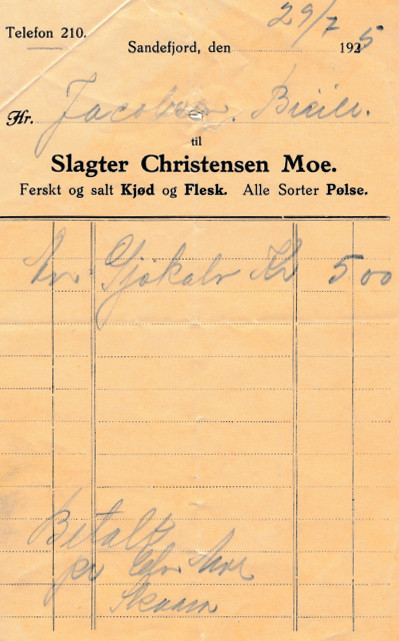 Telefon 210.
Sandefjord, den 29/7 1925
Hr. Jacobsen,
til
Slagter Christensen Moe.
Ferskt og salt Kjød og Flesk. Alle Sorter Pølse.
Gjökalv Kr 5 00
Betalt
pr Chr Moe